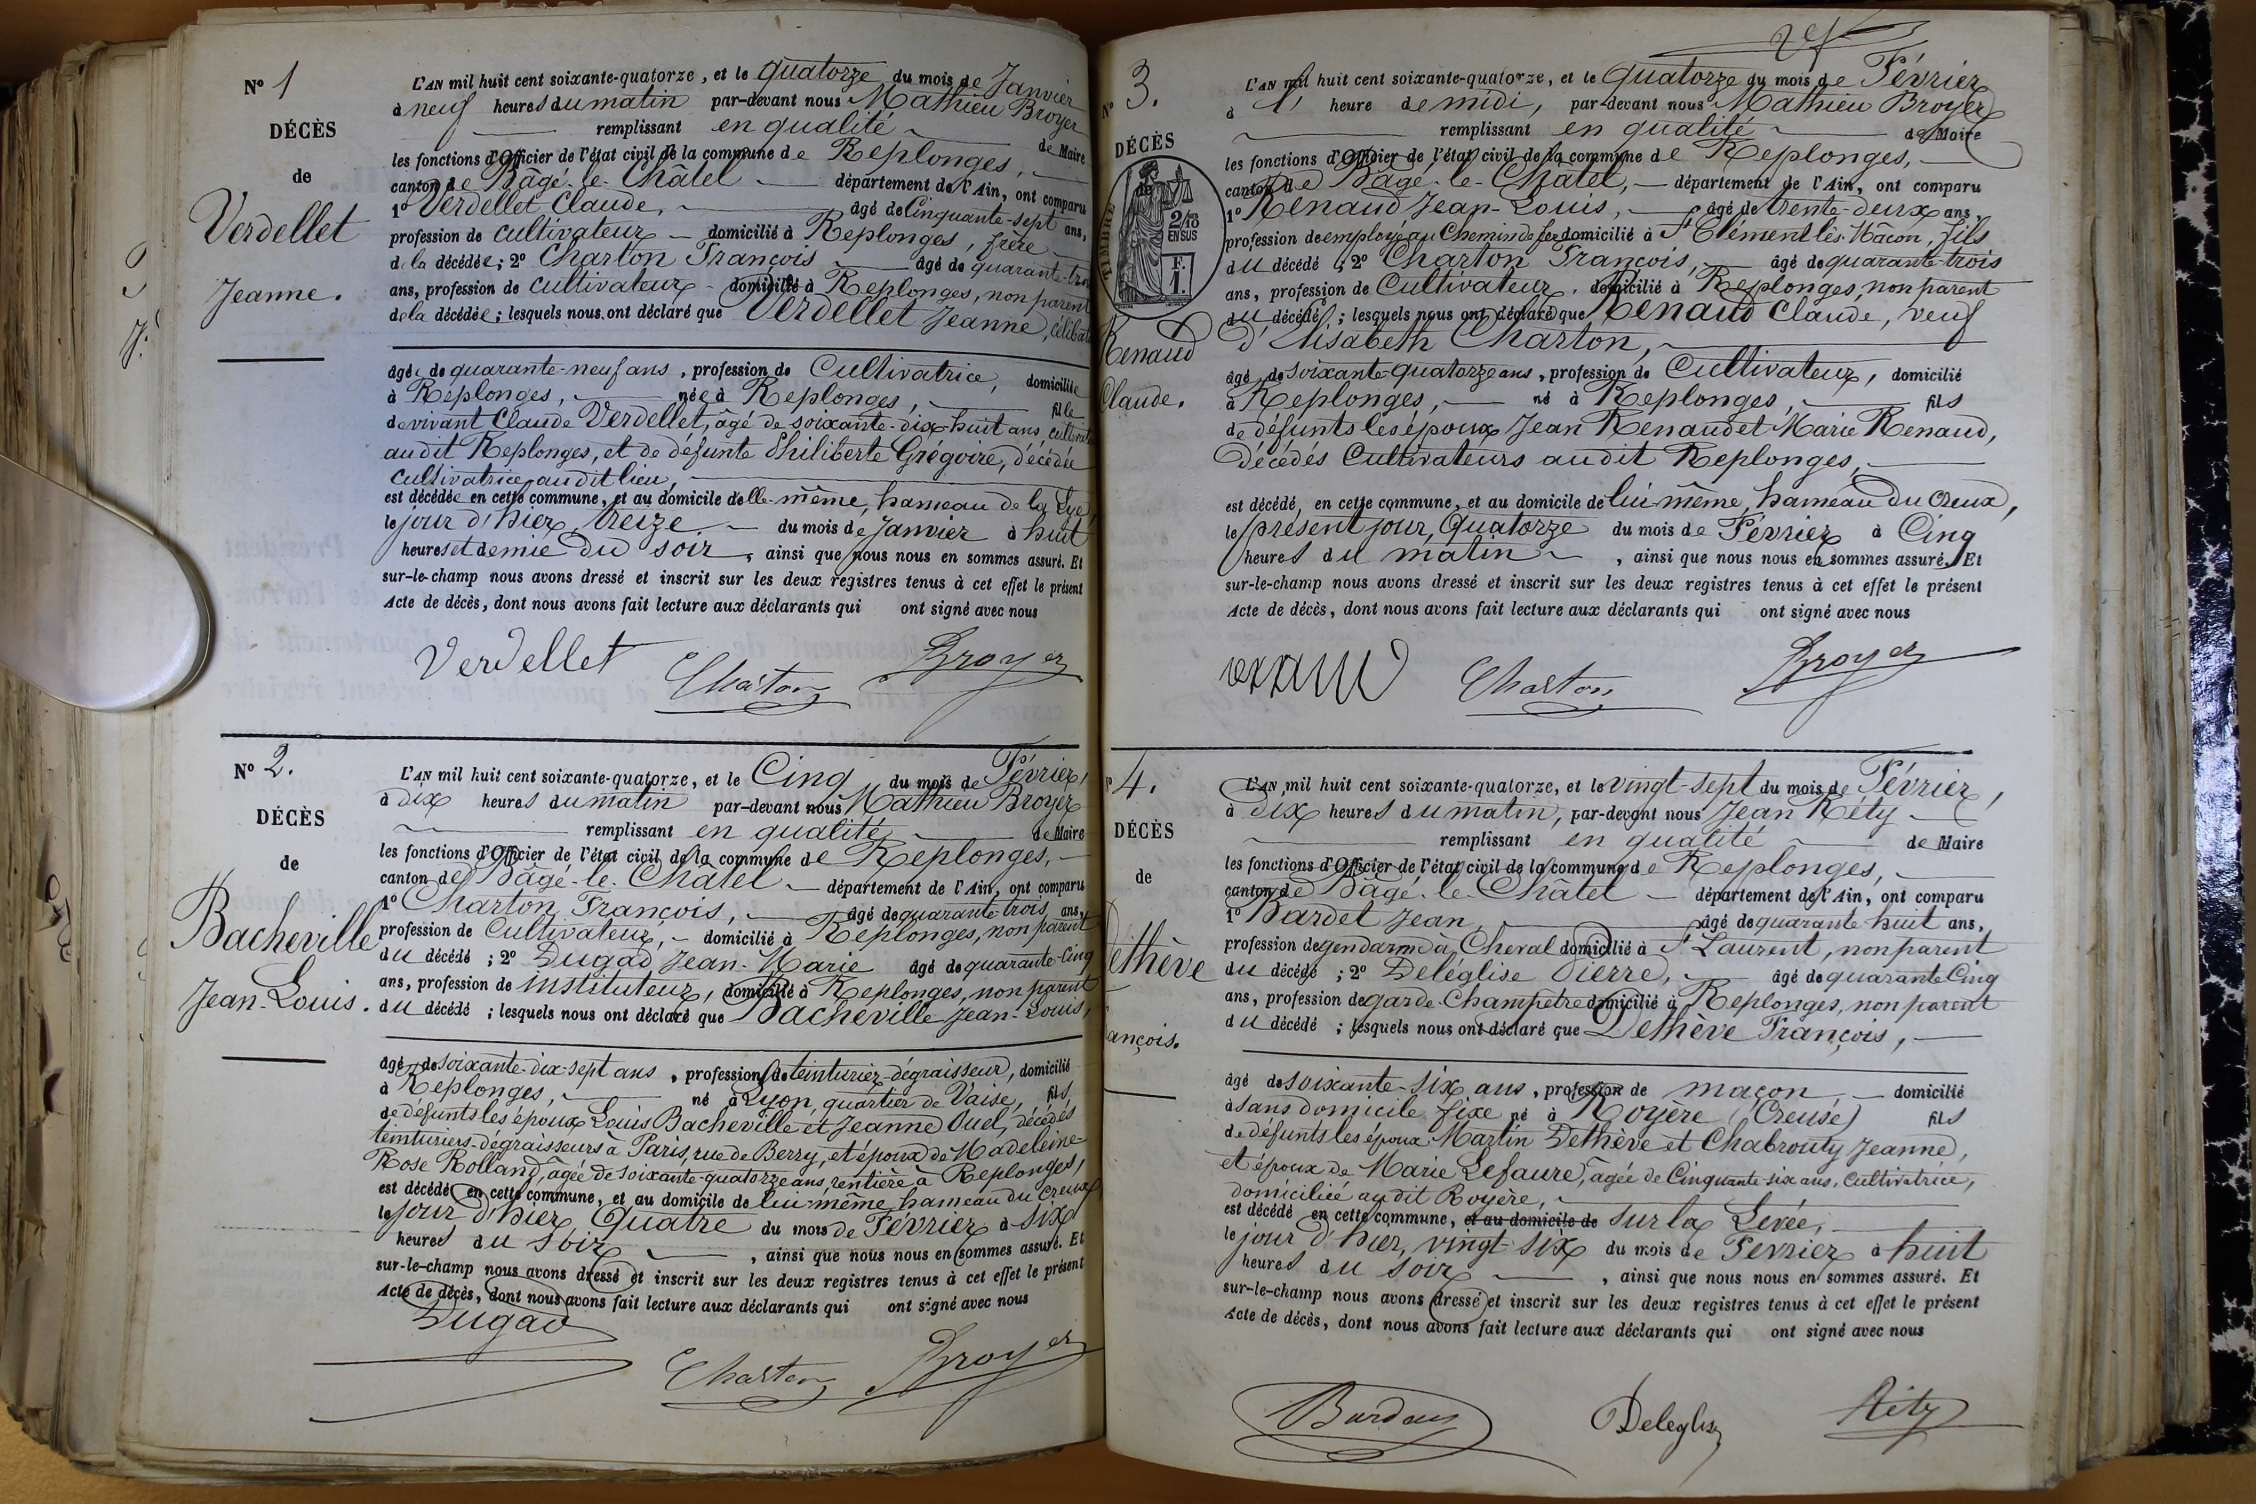 Nº 1
DÉCÈS
de
Verdellet
Jeanne.
L'AN mil huit cent soixante-quatorze, et le quatorze du mois de Janvier
à neuf heures du matin par-devant nous Mathieu Broyer
remplissant en qualité de Maire
les fonctions d'Officier de l'état civil de la commune de Replonges,
canton de Bâgé-le-Châtel département de l'Ain, ont comparu
1º Verdellet Claude, âgé de Cinquante-sept ans,
profession de cultivateur domicilié à Replonges, frère
de la décédée ; 2º Charton François âgé de quarante-trois
ans, profession de cultivateur domicilié à Replonges, non parent
de la décédée ; lesquels nous ont déclaré que Verdellet Jeanne,
âgée de quarante-neuf ans, profession de Cultivatrice, domiciliée
à Replonges, née à Replonges, fille
de vivant Claude Verdellet, âgé de soixante-dix-huit ans,
audit Replonges, et de défunte Philiberte Grégoire, décédée
cultivatrice audit lieu,
est décédée en cette commune, et au domicile d'elle-même, hameau de la
le jour d'hier, treize du mois de Janvier à huit
heures et demie du soir, ainsi que nous nous en sommes assuré. Et
sur-le-champ nous avons dressé et inscrit sur les deux registres tenus à cet effet le présent
Acte de décès, dont nous avons fait lecture aux déclarants qui ont signé avec nous
Verdellet Charton Broyer
Nº 2.
DÉCÈS
de
Bacheville
Jean-Louis.
L'AN mil huit cent soixante-quatorze, et le Cinq du mois de Février,
à dix heures du matin par-devant nous Mathieu Broyer
remplissant en qualité de Maire
les fonctions d'Officier de l'état civil de la commune de Replonges,
canton de Bâgé-le-Châtel département de l'Ain, ont comparu
1º Charton François, âgé de quarante trois ans,
profession de Cultivateur, domicilié à Replonges, non parent
du décédé ; 2º Dugad Jean-Marie âgé de quarante-Cinq
ans, profession de instituteur, domicilié à Replonges, non parent
du décédé ; lesquels nous ont déclaré que Bacheville Jean-Louis,
âgé de soixante-dix-sept ans, profession de teinturier-dégraisseur, domicilié
à Replonges, né à Lyon, quartier de Vaise, fils
de défunts les époux Louis Bacheville et Jeanne Duel, décédés
teinturiers-dégraisseurs à Paris, rue de Berry, et époux de Madeleine
Rose Rolland, âgée de soixante-quatorze ans, rentière à Replonges,
est décédé en cette commune, et au domicile de lui-même, hameau du Creux
le jour d'hier, Quatre du mois de Février à six
heures du soir, ainsi que nous nous en sommes assuré. Et
sur-le-champ nous avons dressé et inscrit sur les deux registres tenus à cet effet le présent
Acte de décès, dont nous avons fait lecture aux déclarants qui ont signé avec nous
Dugad
Charton Broyer
Nº 3.
DÉCÈS
de
TIMBRE
2/10
EN SUS
F.
1.
Renaud
Claude.
L'AN mil huit cent soixante-quatorze, et le Quatorze du mois de Février
à 1 heure de midi, par-devant nous Mathieu Broyer
remplissant en qualité de Maire
les fonctions d'Officier de l'état civil de la commune de Replonges,
canton de Bâgé-le-Châtel, département de l'Ain, ont comparu
1º Renaud Jean-Louis, âgé de trente-deux ans,
profession de employé au Chemin de fer domicilié à St Clément lès-Mâcon, fils
du décédé ; 2º Charton François, âgé de quarante-trois
ans, profession de Cultivateur, domicilié à Replonges, non parent
du décédé ; lesquels nous ont déclaré que Renaud Claude, veuf
d'Elisabeth Charton,
âgé de soixante-quatorze ans, profession de Cultivateur, domicilié
à Replonges, né à Replonges, fils
de défunts les époux Jean Renaud et Marie Renaud,
décédés Cultivateurs audit Replonges,
est décédé en cette commune, et au domicile de lui-même, hameau du Creux,
le présent jour, Quatorze du mois de Février à Cinq
heures du matin, ainsi que nous nous en sommes assuré. Et
sur-le-champ nous avons dressé et inscrit sur les deux registres tenus à cet effet le présent
Acte de décès, dont nous avons fait lecture aux déclarants qui ont signé avec nous
Charton Broyer
4.
DÉCÈS
de
ethève
ançois.
L'AN mil huit cent soixante-quatorze, et le vingt-sept du mois de Février,
à dix heures du matin, par-devant nous Jean Réty
remplissant en qualité de Maire
les fonctions d'Officier de l'état civil de la commune de Replonges,
canton de Bâgé-le-Châtel département de l'Ain, ont comparu
1º Bardet Jean, âgé de quarante huit ans,
profession de gendarme à Cheval domicilié à St Laurent, non parent
du décédé ; 2º Deléglise Pierre, âgé de quarante Cinq
ans, profession de garde-Champêtre domicilié à Replonges, non parent
du décédé ; lesquels nous ont déclaré que Dethève François,
âgé de soixante-six ans, profession de maçon, domicilié
à sans domicile fixe né à Royère (Creuse) fils
de défunts les époux Martin Dethève et Chabrouty Jeanne,
et époux de Marie Lefaure, âgée de Cinquante six ans, Cultivatrice,
domiciliée audit Royère,
est décédé en cette commune, et au domicile de sur la Levée,
le jour d'hier, vingt-six du mois de Février à huit
heures du soir, ainsi que nous nous en sommes assuré. Et
sur-le-champ nous avons dressé et inscrit sur les deux registres tenus à cet effet le présent
Acte de décès, dont nous avons fait lecture aux déclarants qui ont signé avec nous
Réty